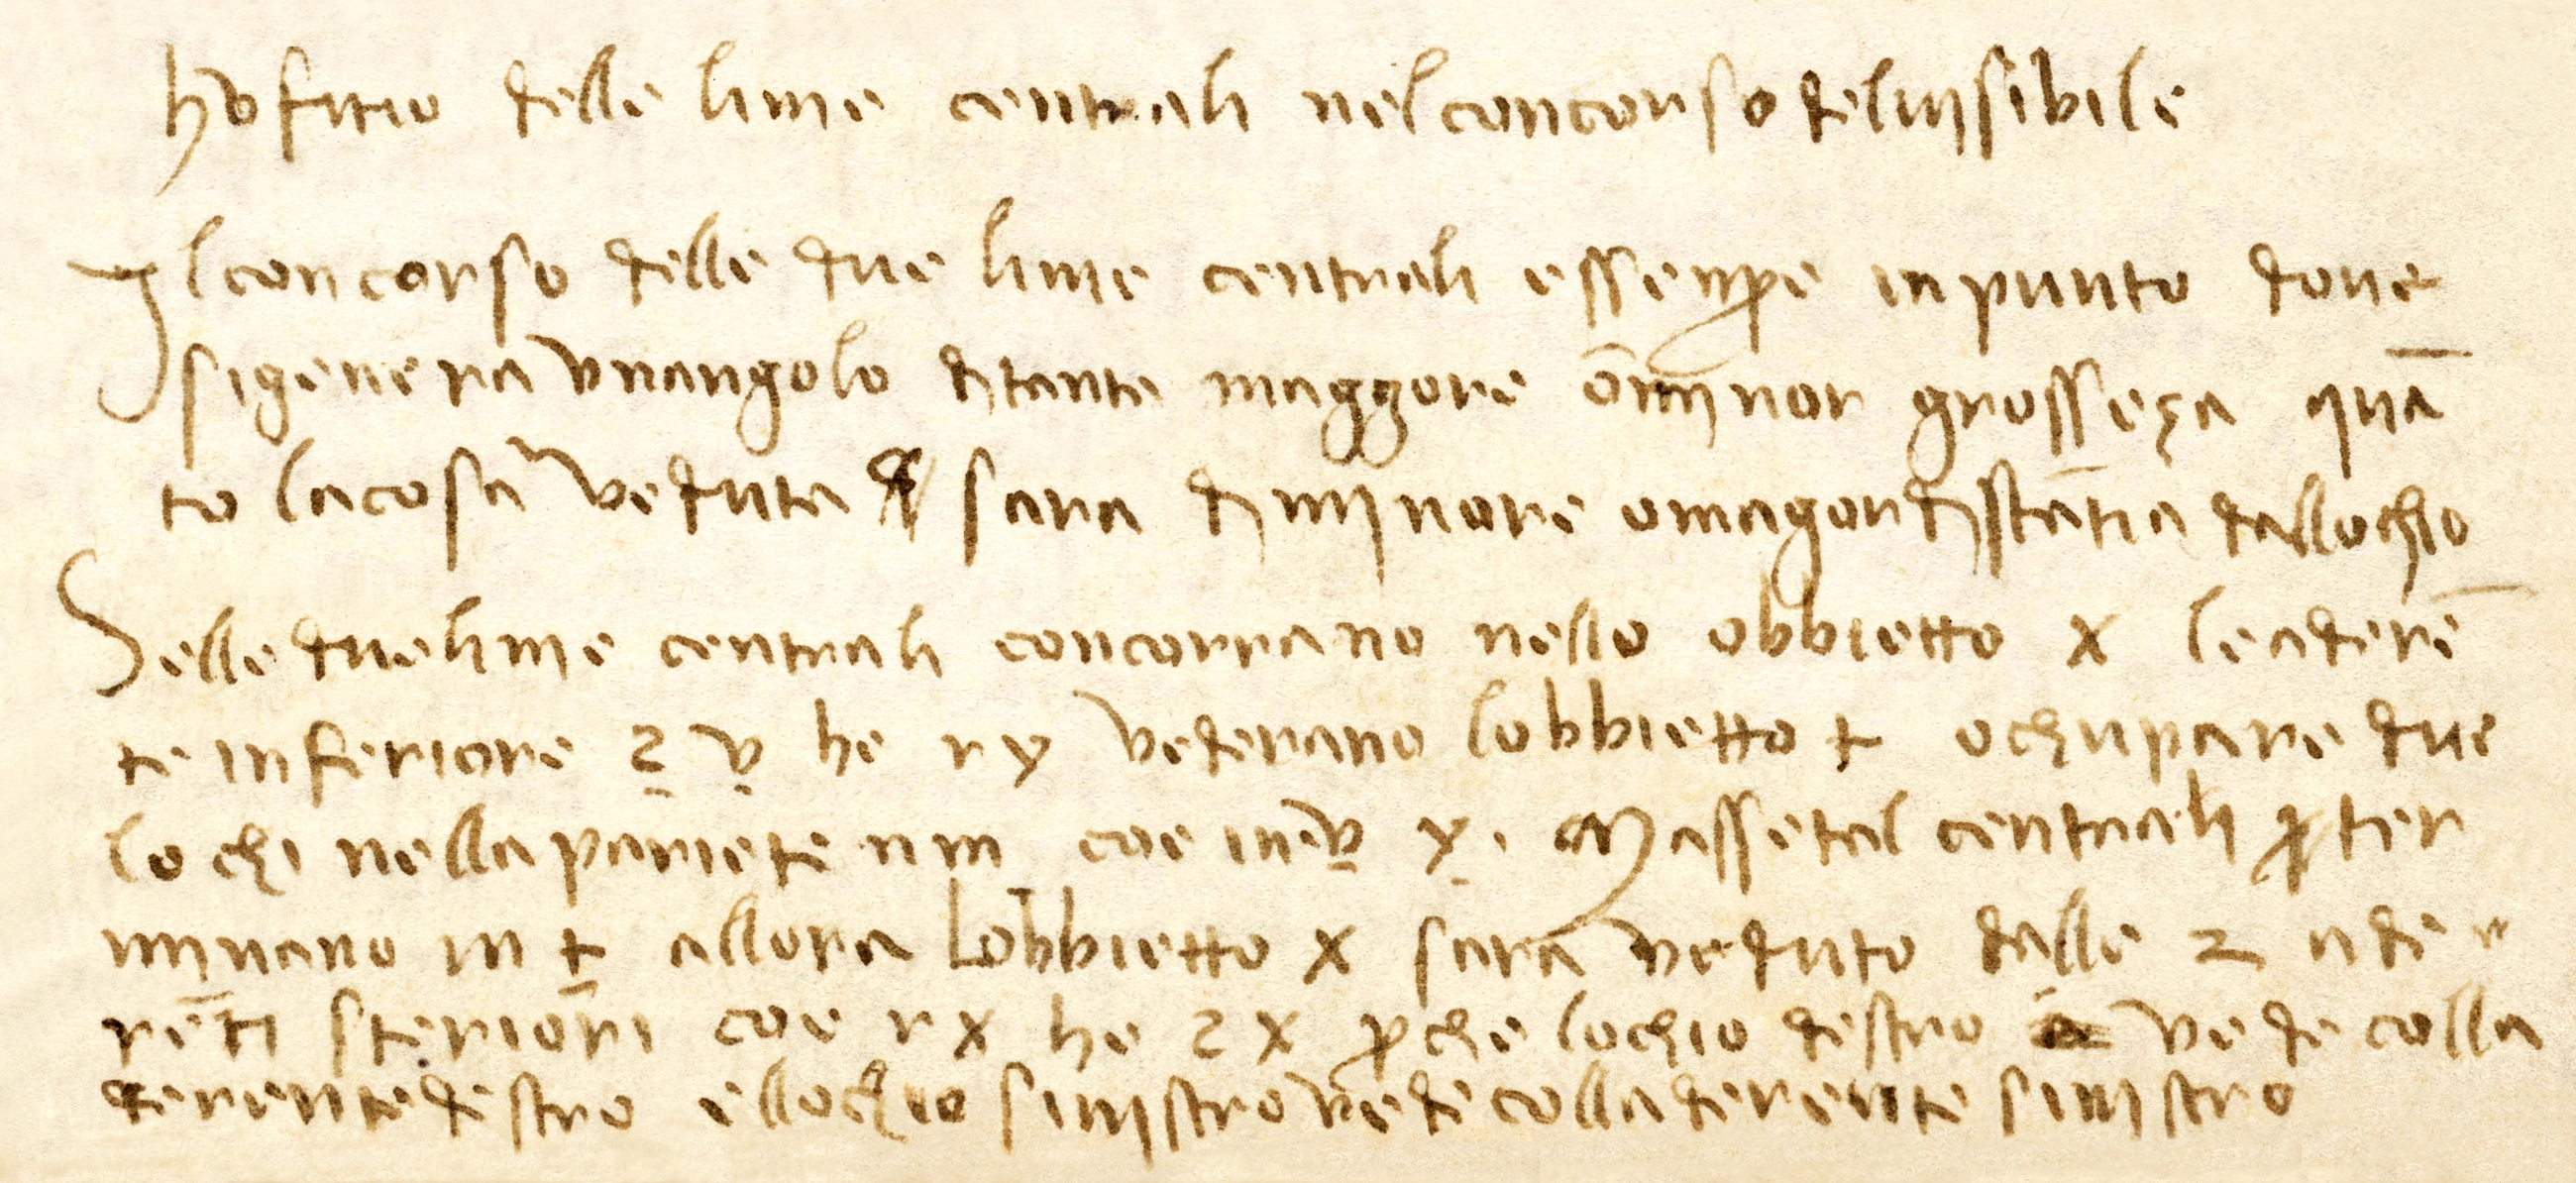 hofitio delle linie centrali nel concorso del visibile
Jl concorso delle due linie centrali essempre in punto doue
si genera vnangolo di tanta maggore o minor grosseza quā
to la cosa veduta sara di minore o magor distātia dallochio
Selle due linie centrali concorrano nello obbietto x le aderē
te inferiore 2 v he r y vederano lobbietto + ochupare due
lochi nella pariete n m coe in v y. Massetal centrali p ter
minano in + allora lobbietto x sara veduto dalle 2 ade
rēti steriori coe r x he 2 x p che lochio destro vede colla
derente destro ellochio sinistro vede colladerente sinistro